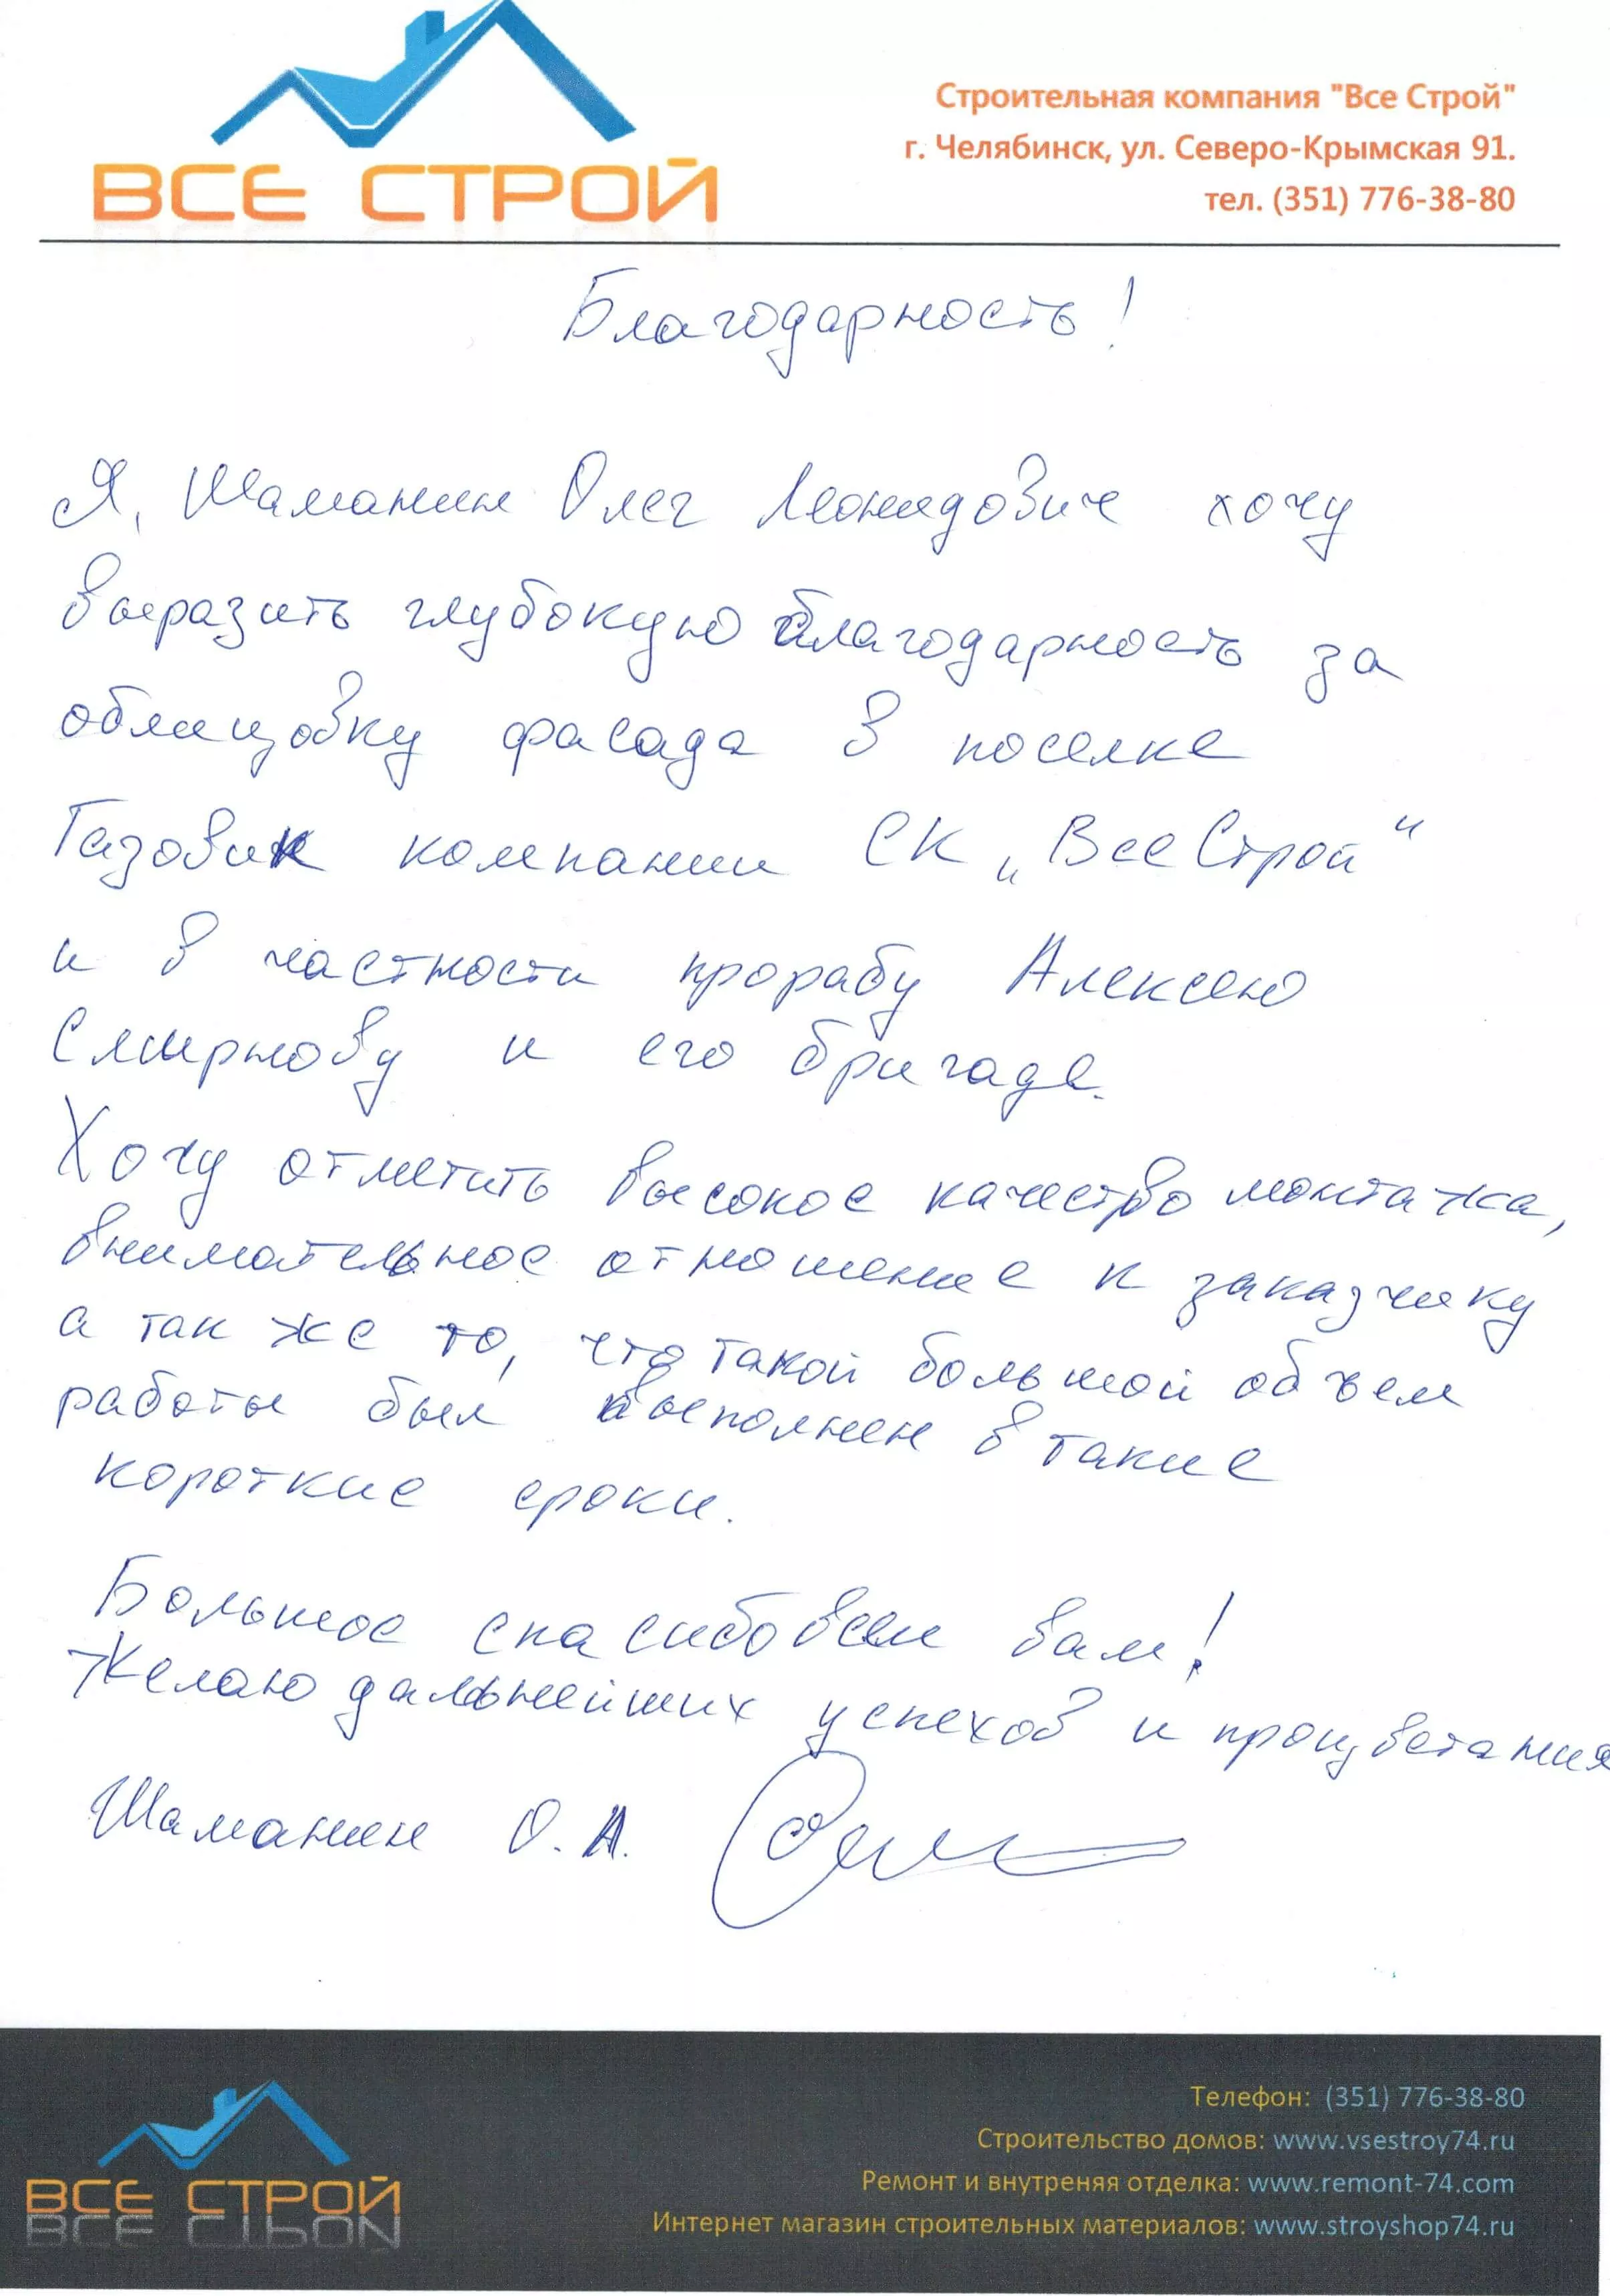 ВСЕ СТРОЙ
Строительная компания "Все Строй"
г. Челябинск, ул. Северо-Крымская 91.
тел. (351) 776-38-80
Благодарность!
Я, Шаманин Олег Леонидович хочу
выразить глубокую благодарность за
облицовку фасада в поселке
Газовик компании СК „ВсеСтрой"
и в частности прорабу Алексею
Смирнову и его бригаде.
Хочу отметить высокое качество монтажа,
внимательное отношение к заказчику
а так же то, что такой большой объем
работы был выполнен в такие
короткие сроки.
Большое спасибо всем вам!
Желаю дальнейших успехов и процветания
Шаманин О.Л.
ВСЕ СТРОЙ
Телефон: (351) 776-38-80
Строительство домов: www.vsestroy74.ru
Ремонт и внутреняя отделка: www.remont-74.com
Интернет магазин строительных материалов: www.stroyshop74.ru